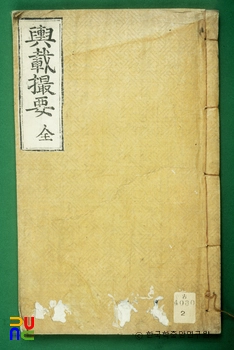 輿載撮要 全
A
4030
2
한국학중앙연구원